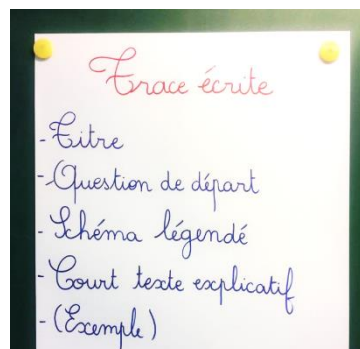 Trace écrite
- Titre
- Question de départ
- Schéma légendé
- Court texte explicatif
- (Exemple)